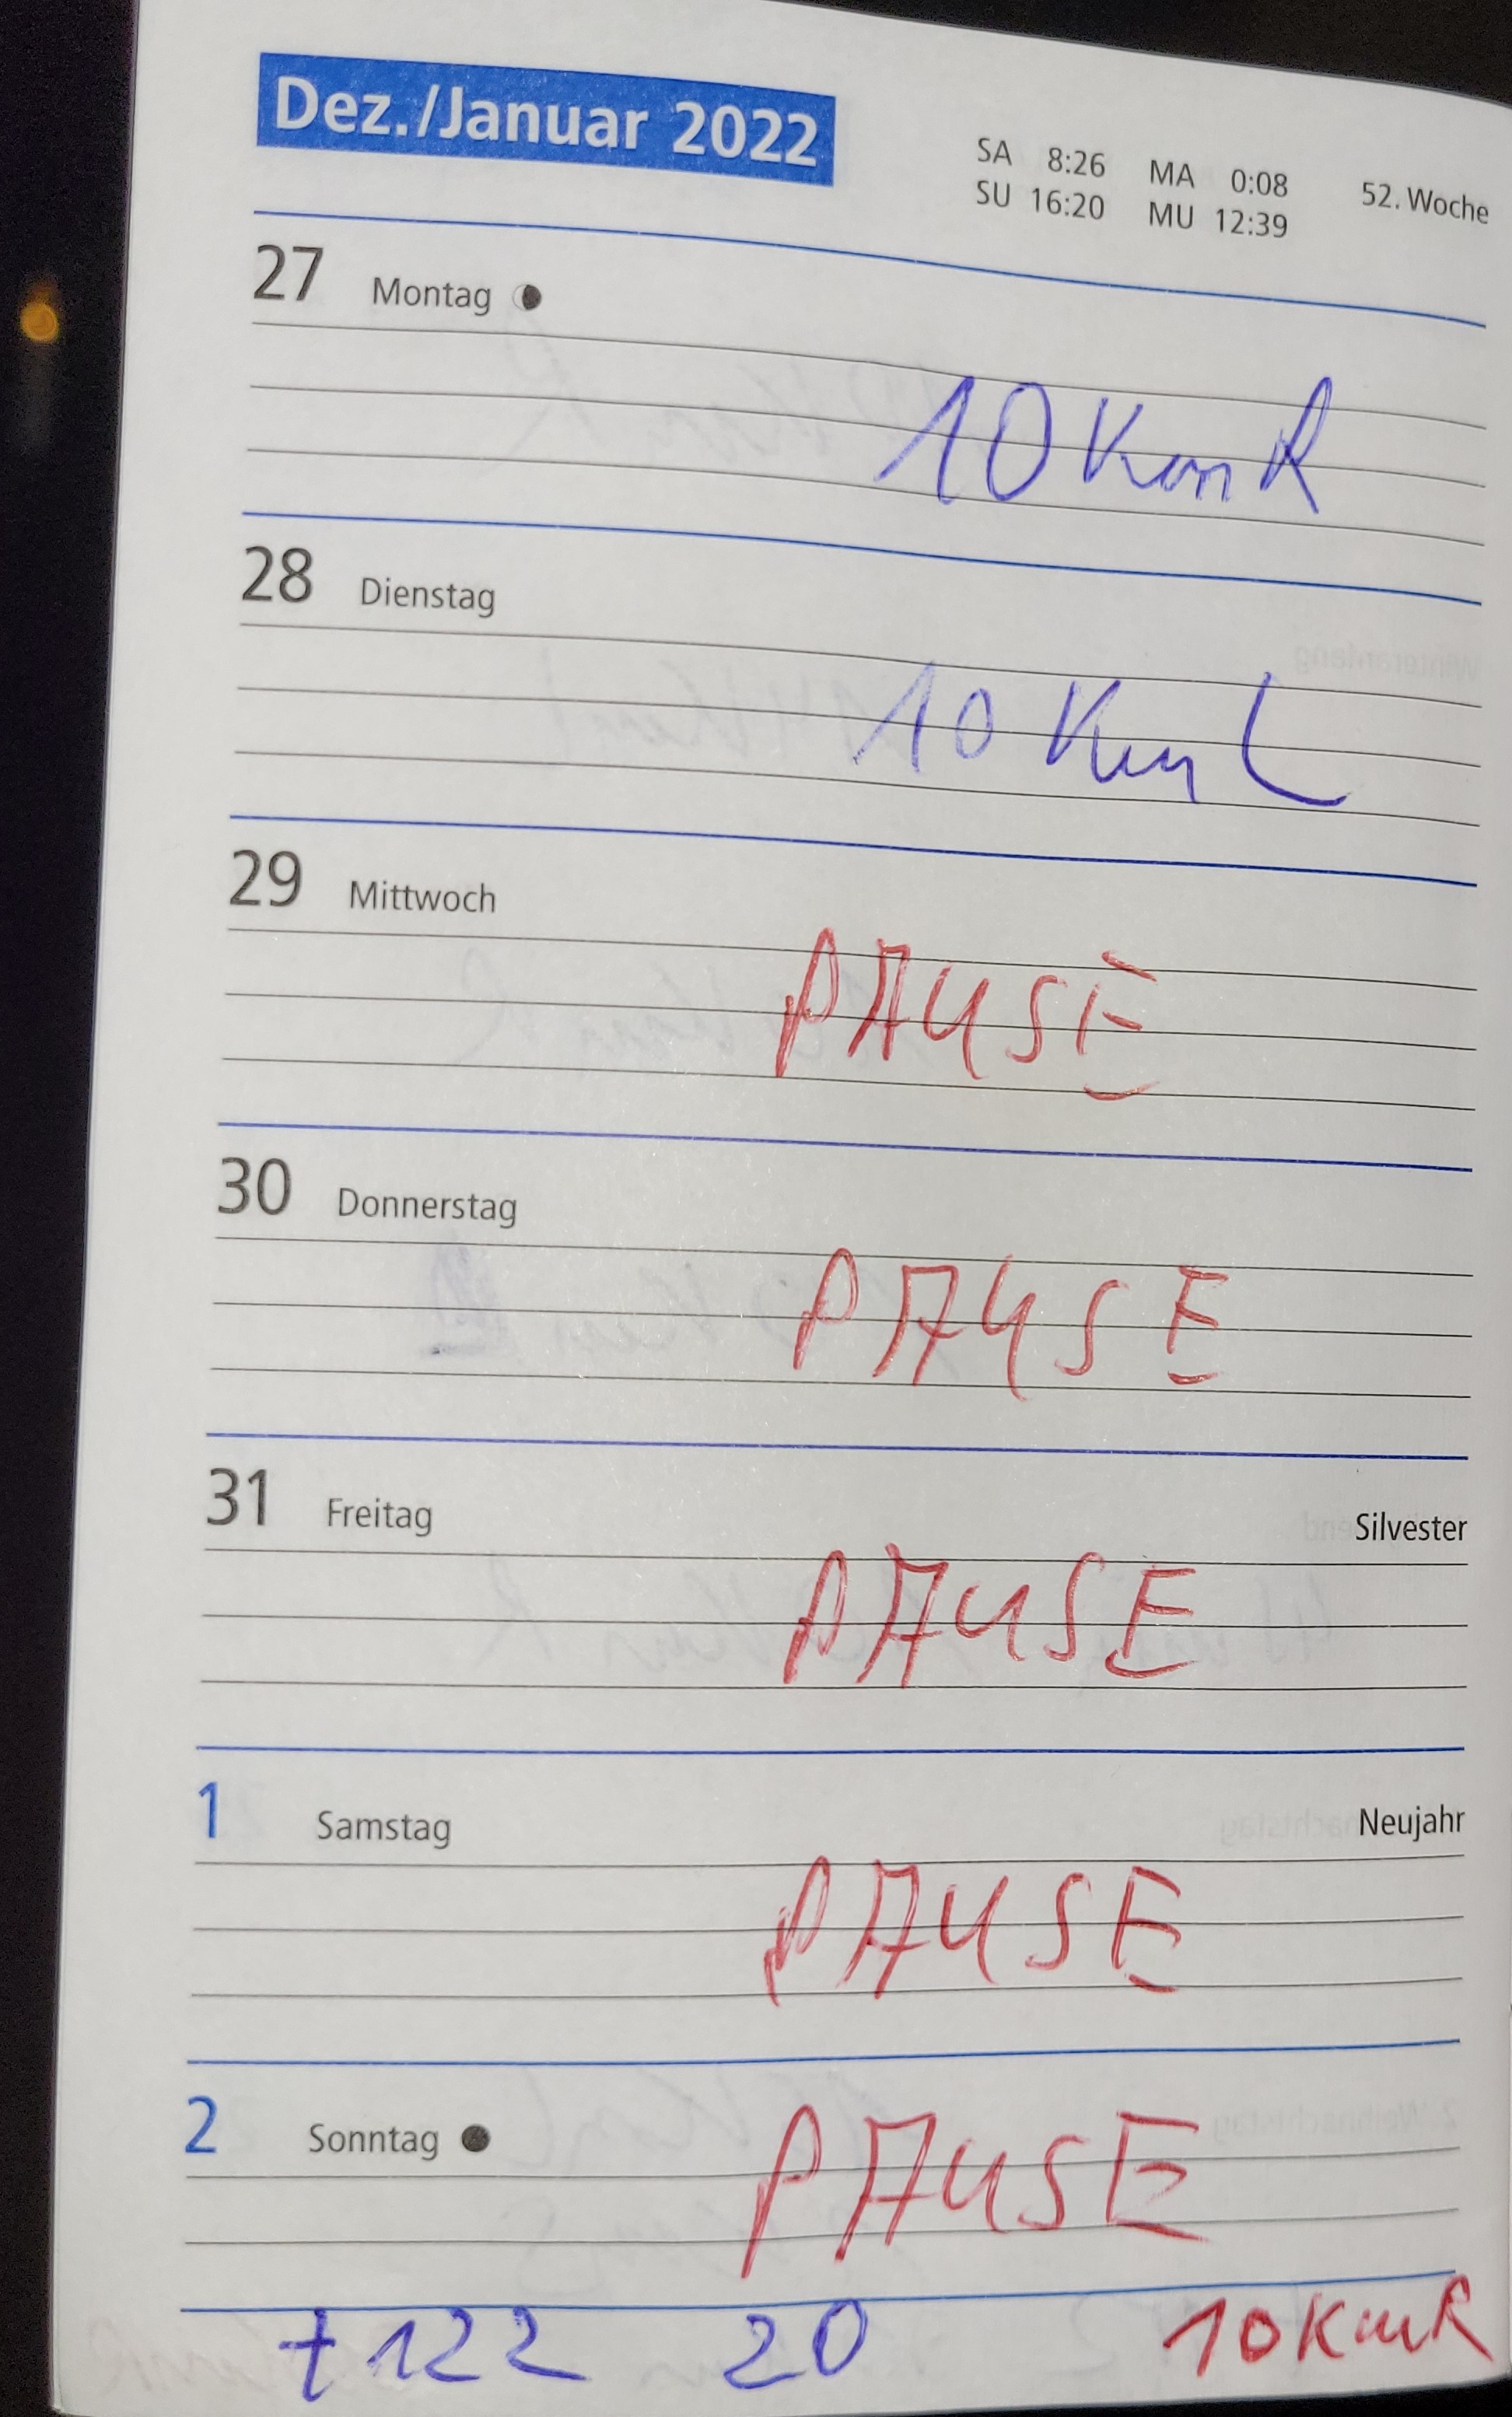 Dez./Januar 2022
SA 8:26 MA 0:08 52. Woche
SU 16:20 MU 12:39
27 Montag
10 Km R
28 Dienstag
10 Km L
29 Mittwoch
PAUSE
30 Donnerstag
PAUSE
31 Freitag Silvester
PAUSE
1 Samstag Neujahr
PAUSE
2 Sonntag
PAUSE
+122 20 10 Km R